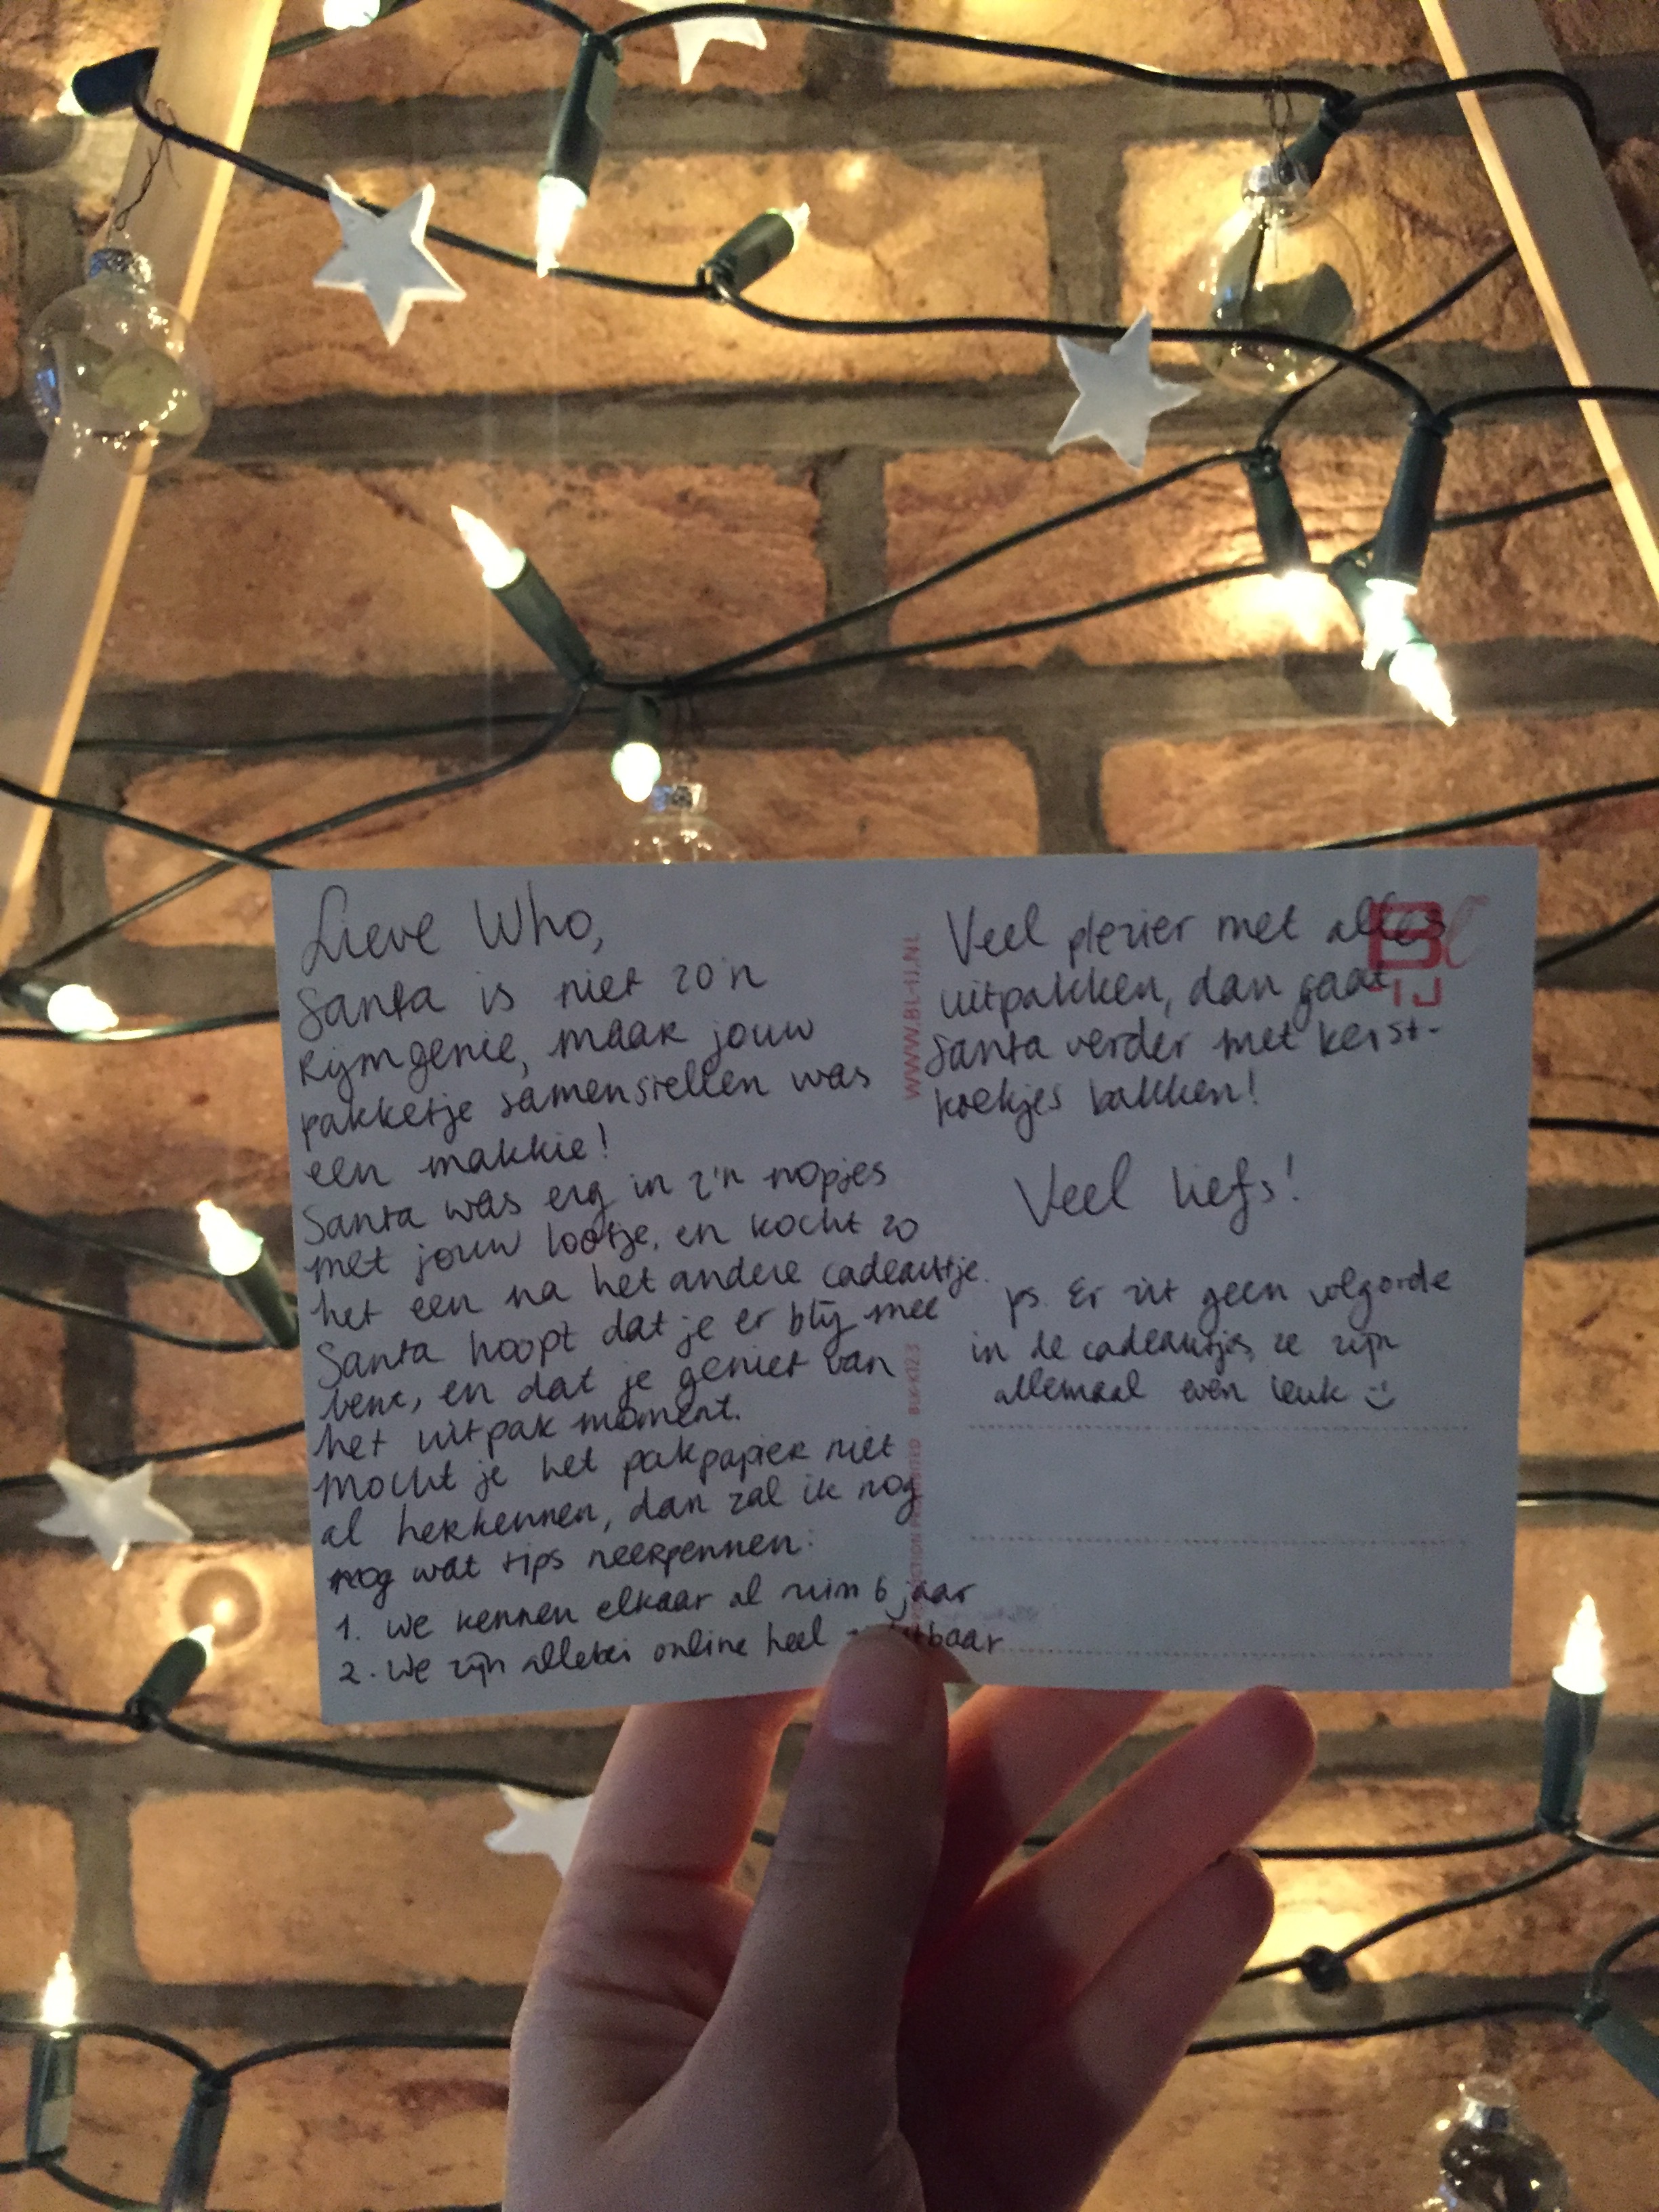 Lieve Who,
Santa is niet zo'n
rijmgenie, maar jouw
pakketje samenstellen was
een makkie!
Santa was erg in z'n nopjes
met jouw lootje, en kocht zo
het een na het andere cadeautje.
Santa hoopt dat je er blij mee
bent, en dat je geniet van
het uitpak moment.
Mocht je het pakpapier niet
al herkennen, dan zal ik nog
nog wat tips neerpennen:
1. We kennen elkaar al ruim 6 jaar
2. We zijn allebei online heel
Veel plezier met alles
uitpakken, dan gaat
Santa verder met kerst-
koekjes bakken!
Veel liefs!
ps. Er zit geen volgorde
in de cadeautjes, ze zijn
allemaal even leuk :)
WWW.BL-IJ.NL
Bl
IJ